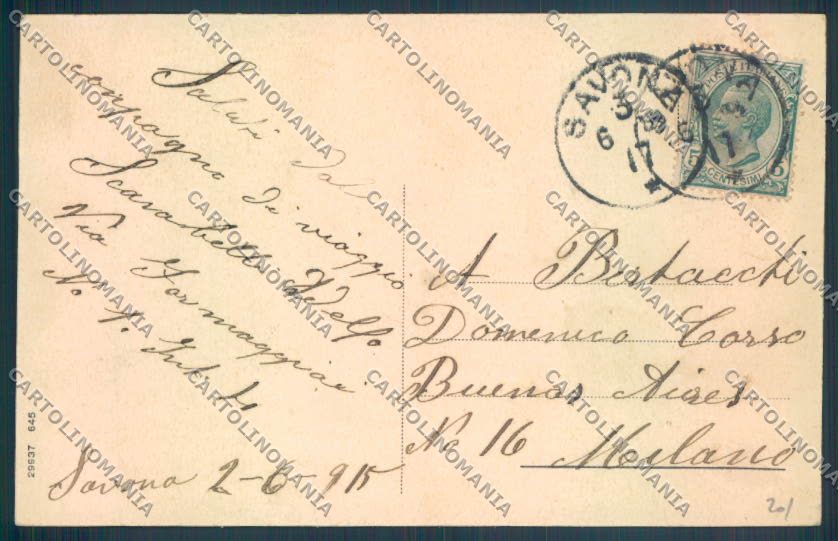 Saluti dal
compagno di viaggio
Scarabelli Adelfo
Via Formaggiai
No 7. Int 4
Savona 2-6-915
SAVONA
6
17
POSTE ITALIANE
CENTESIMI
A Bertacchi
Domenico Corso
Buenos Aires
No 16
Milano
29937 645
201
CARTOLINOMANIA